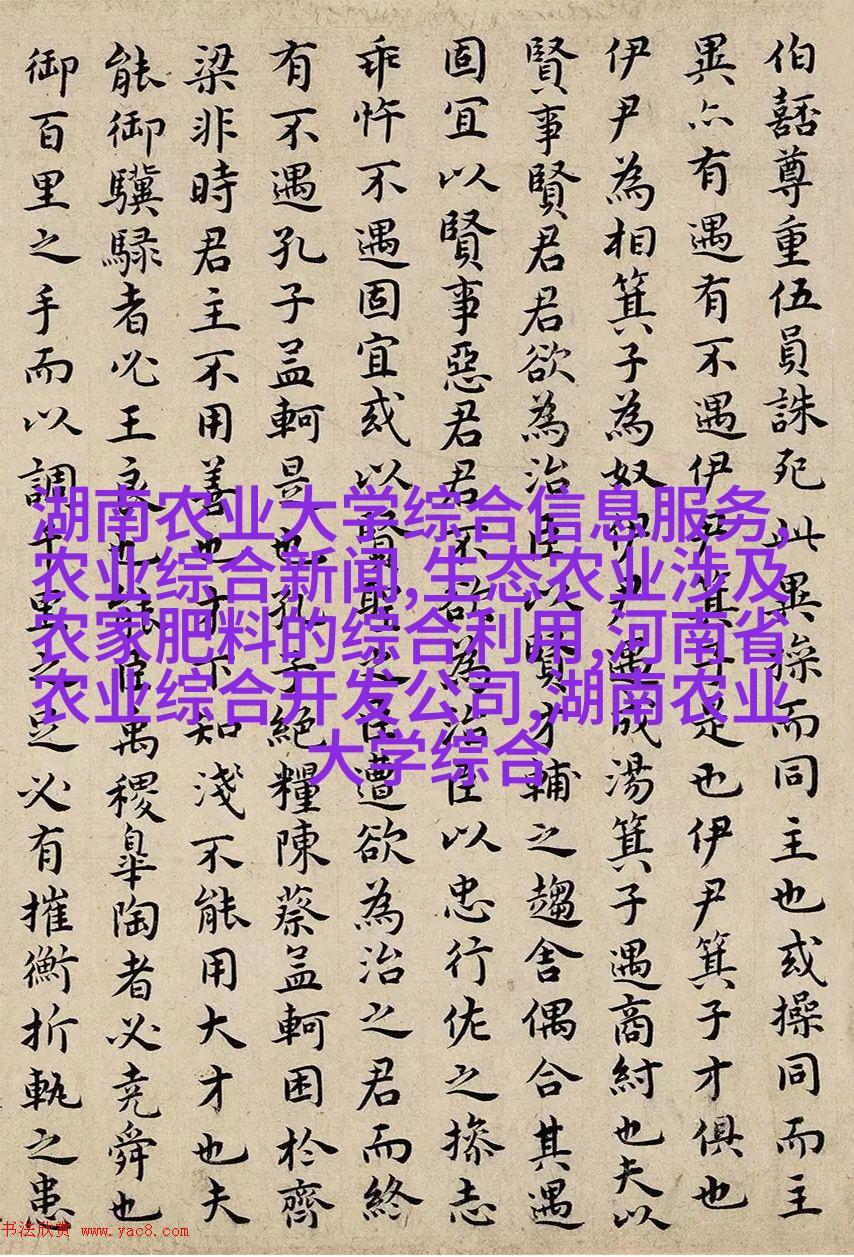 伯嚭尊重伍員誅死此異操而同主也或操同而主
異亦有遇有不遇伊尹箕子是也伊尹箕子才俱也
伊尹為相箕子為奴伊尹遇成湯箕子遇商紂也夫以
賢事賢君君欲為治臣以賢才輔之趨舍偶合其遇
固宜以賢事惡君君不欲為治臣以忠行佐之操志
乖忤不遇固宜或以賢聖之臣遭欲為治之君而終
有不遇孔子孟軻是也孔子絕糧陳蔡孟軻困於齊
梁非時君主不用善也才下知淺不能用大才也夫
能御驥騄者必王良也能臣禹稷皋陶者必堯舜也
御百里之手而以調千里之足必有摧衡折軛之患
湖南农业大学综合信息服务,
农业综合新闻,生态农业涉及
农家肥料的综合利用,河南省
农业综合开发公司,湖南农业
大学综合
书法欣赏 www.yac8.com